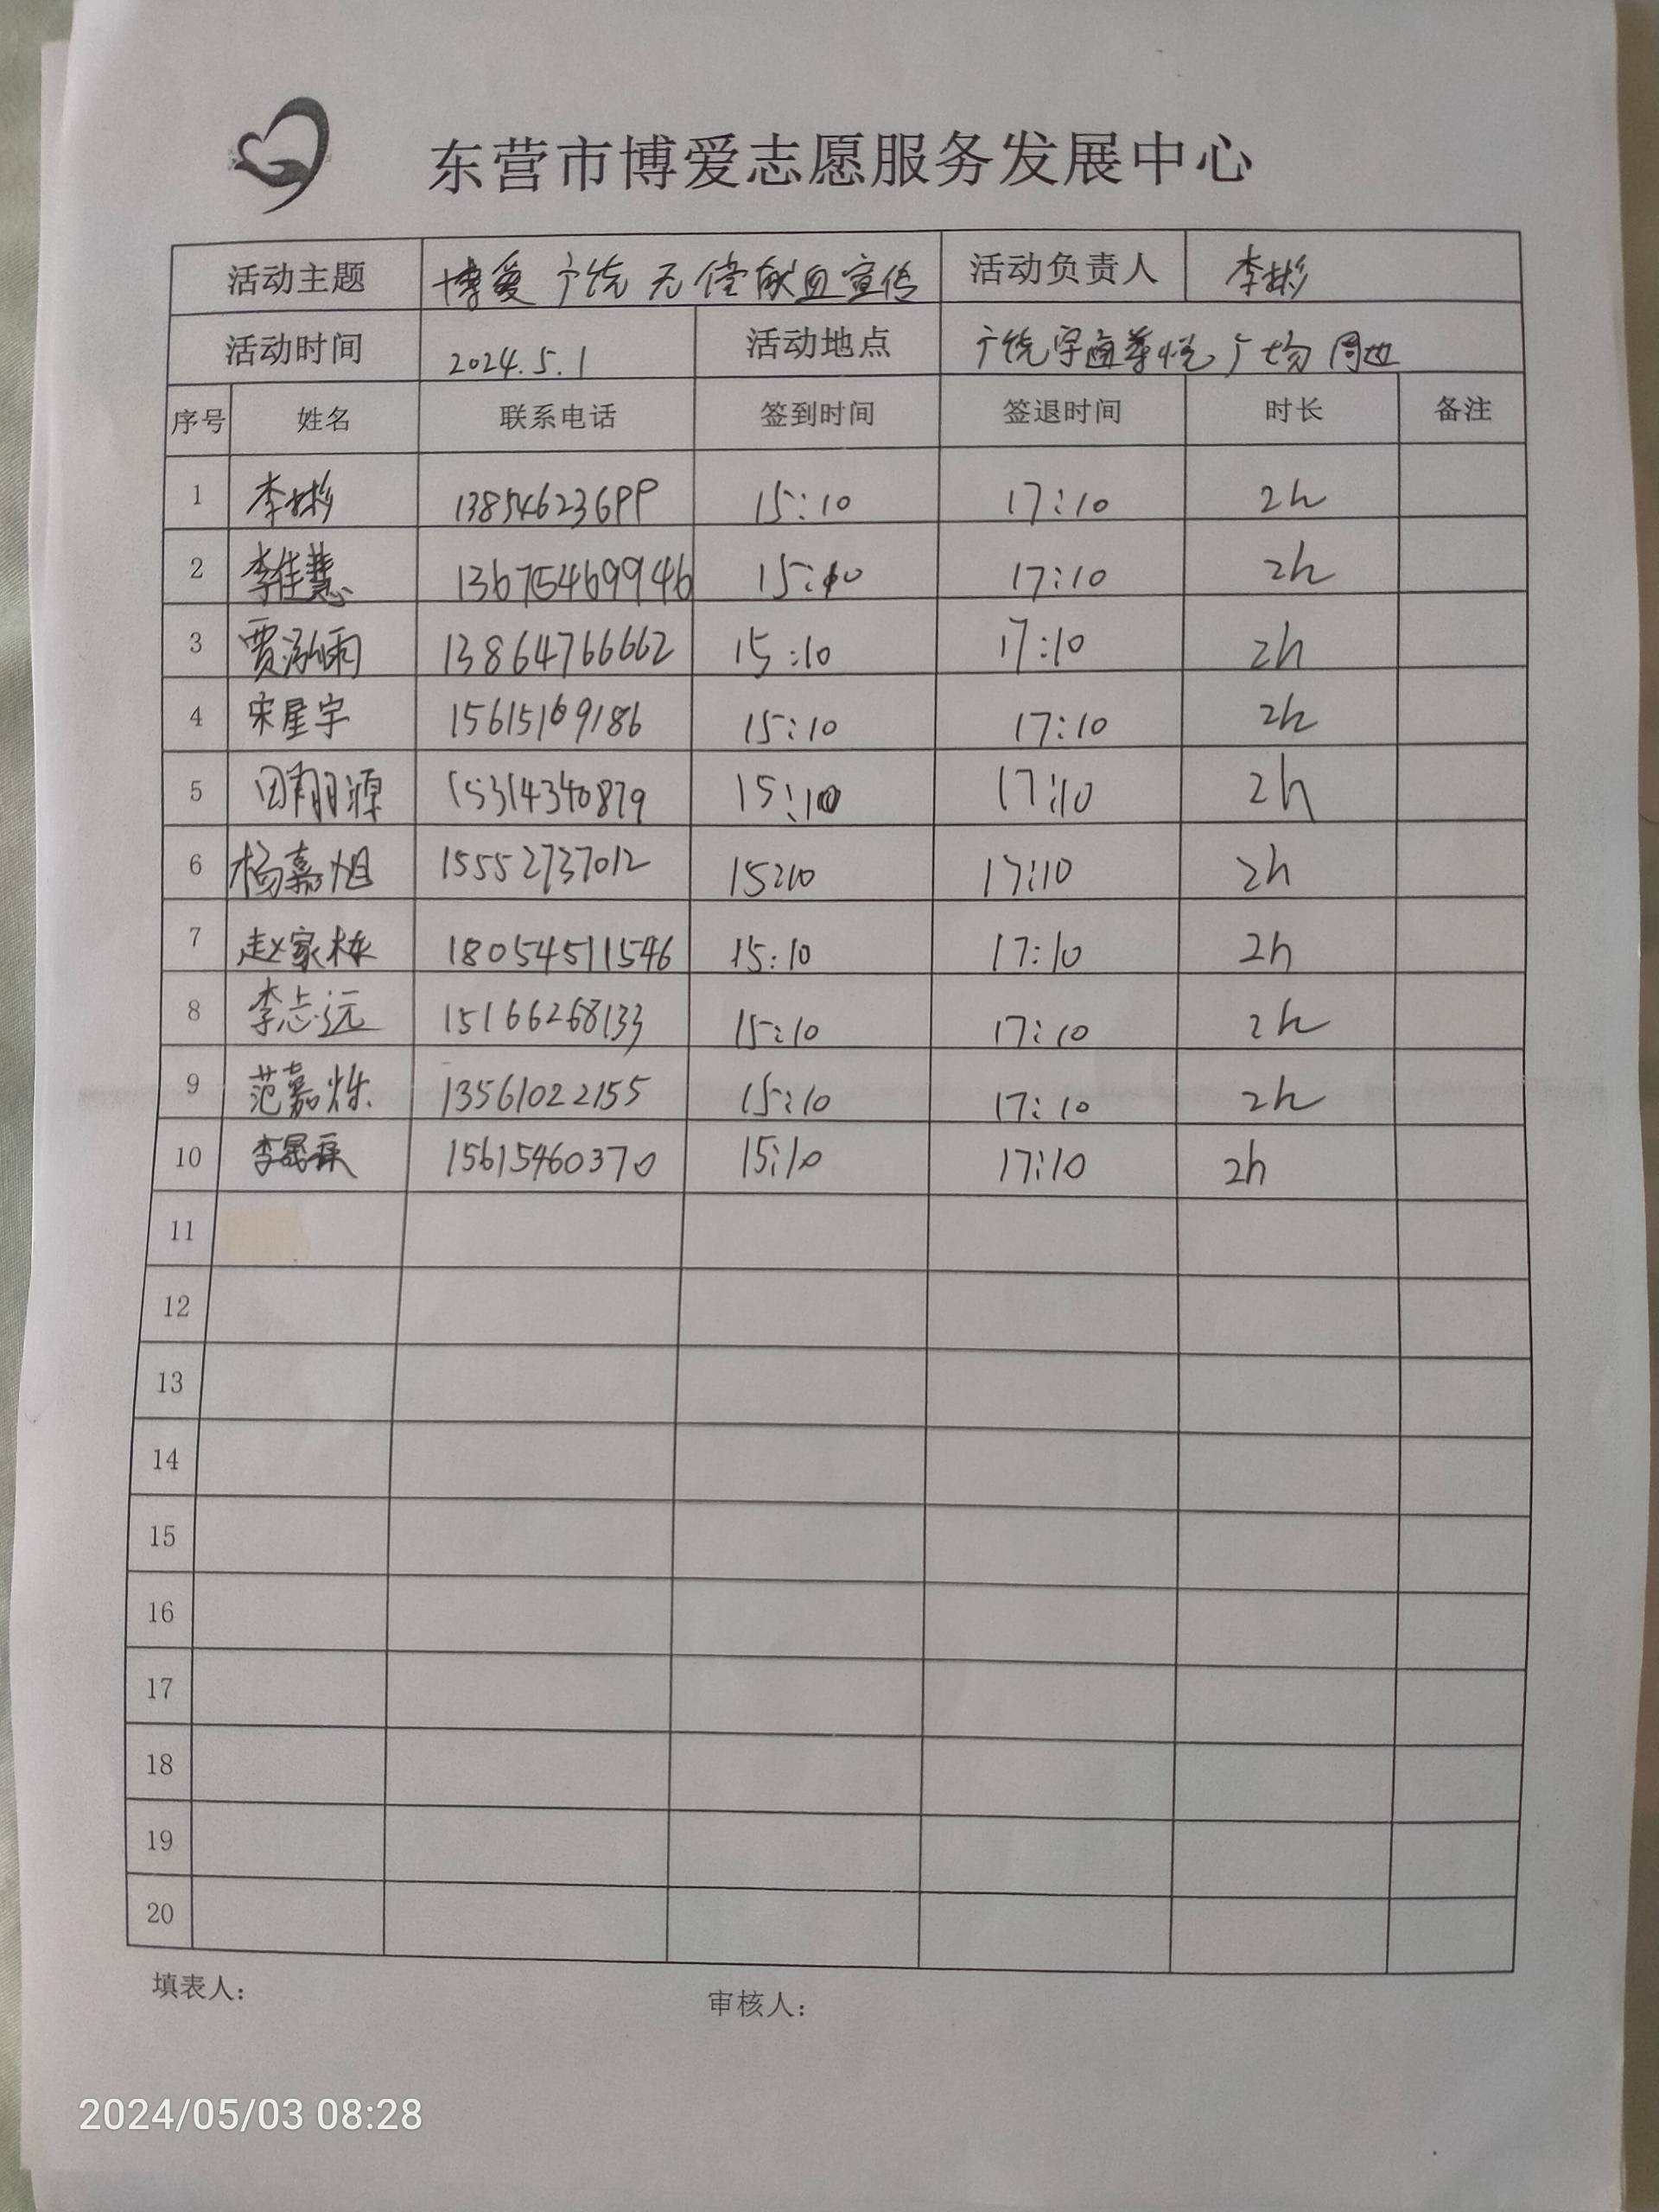 东营市博爱志愿服务发展中心
活动主题 博爱广饶无偿献血宣传 活动负责人 李彬
活动时间 2024.5.1 活动地点 广饶宇通尊悦广场周边
序号 姓名 联系电话 签到时间 签退时间 时长 备注
1 李彬 13854623699 15:10 17:10 2h
2 李佳慧 13675469946 15:10 17:10 2h
3 贾泓雨 13864766662 15:10 17:10 2h
4 宋星宇 15615169186 15:10 17:10 2h
5 田翔源 15314340879 15:10 17:10 2h
6 杨嘉旭 15552737012 15:10 17:10 2h
7 赵家栋 18054511546 15:10 17:10 2h
8 李志远 15166268133 15:10 17:10 2h
9 范嘉烁 13561022155 15:10 17:10 2h
10 15615460370 15:10 17:10 2h
11
12
13
14
15
16
17
18
19
20
填表人： 审核人：
2024/05/03 08:28